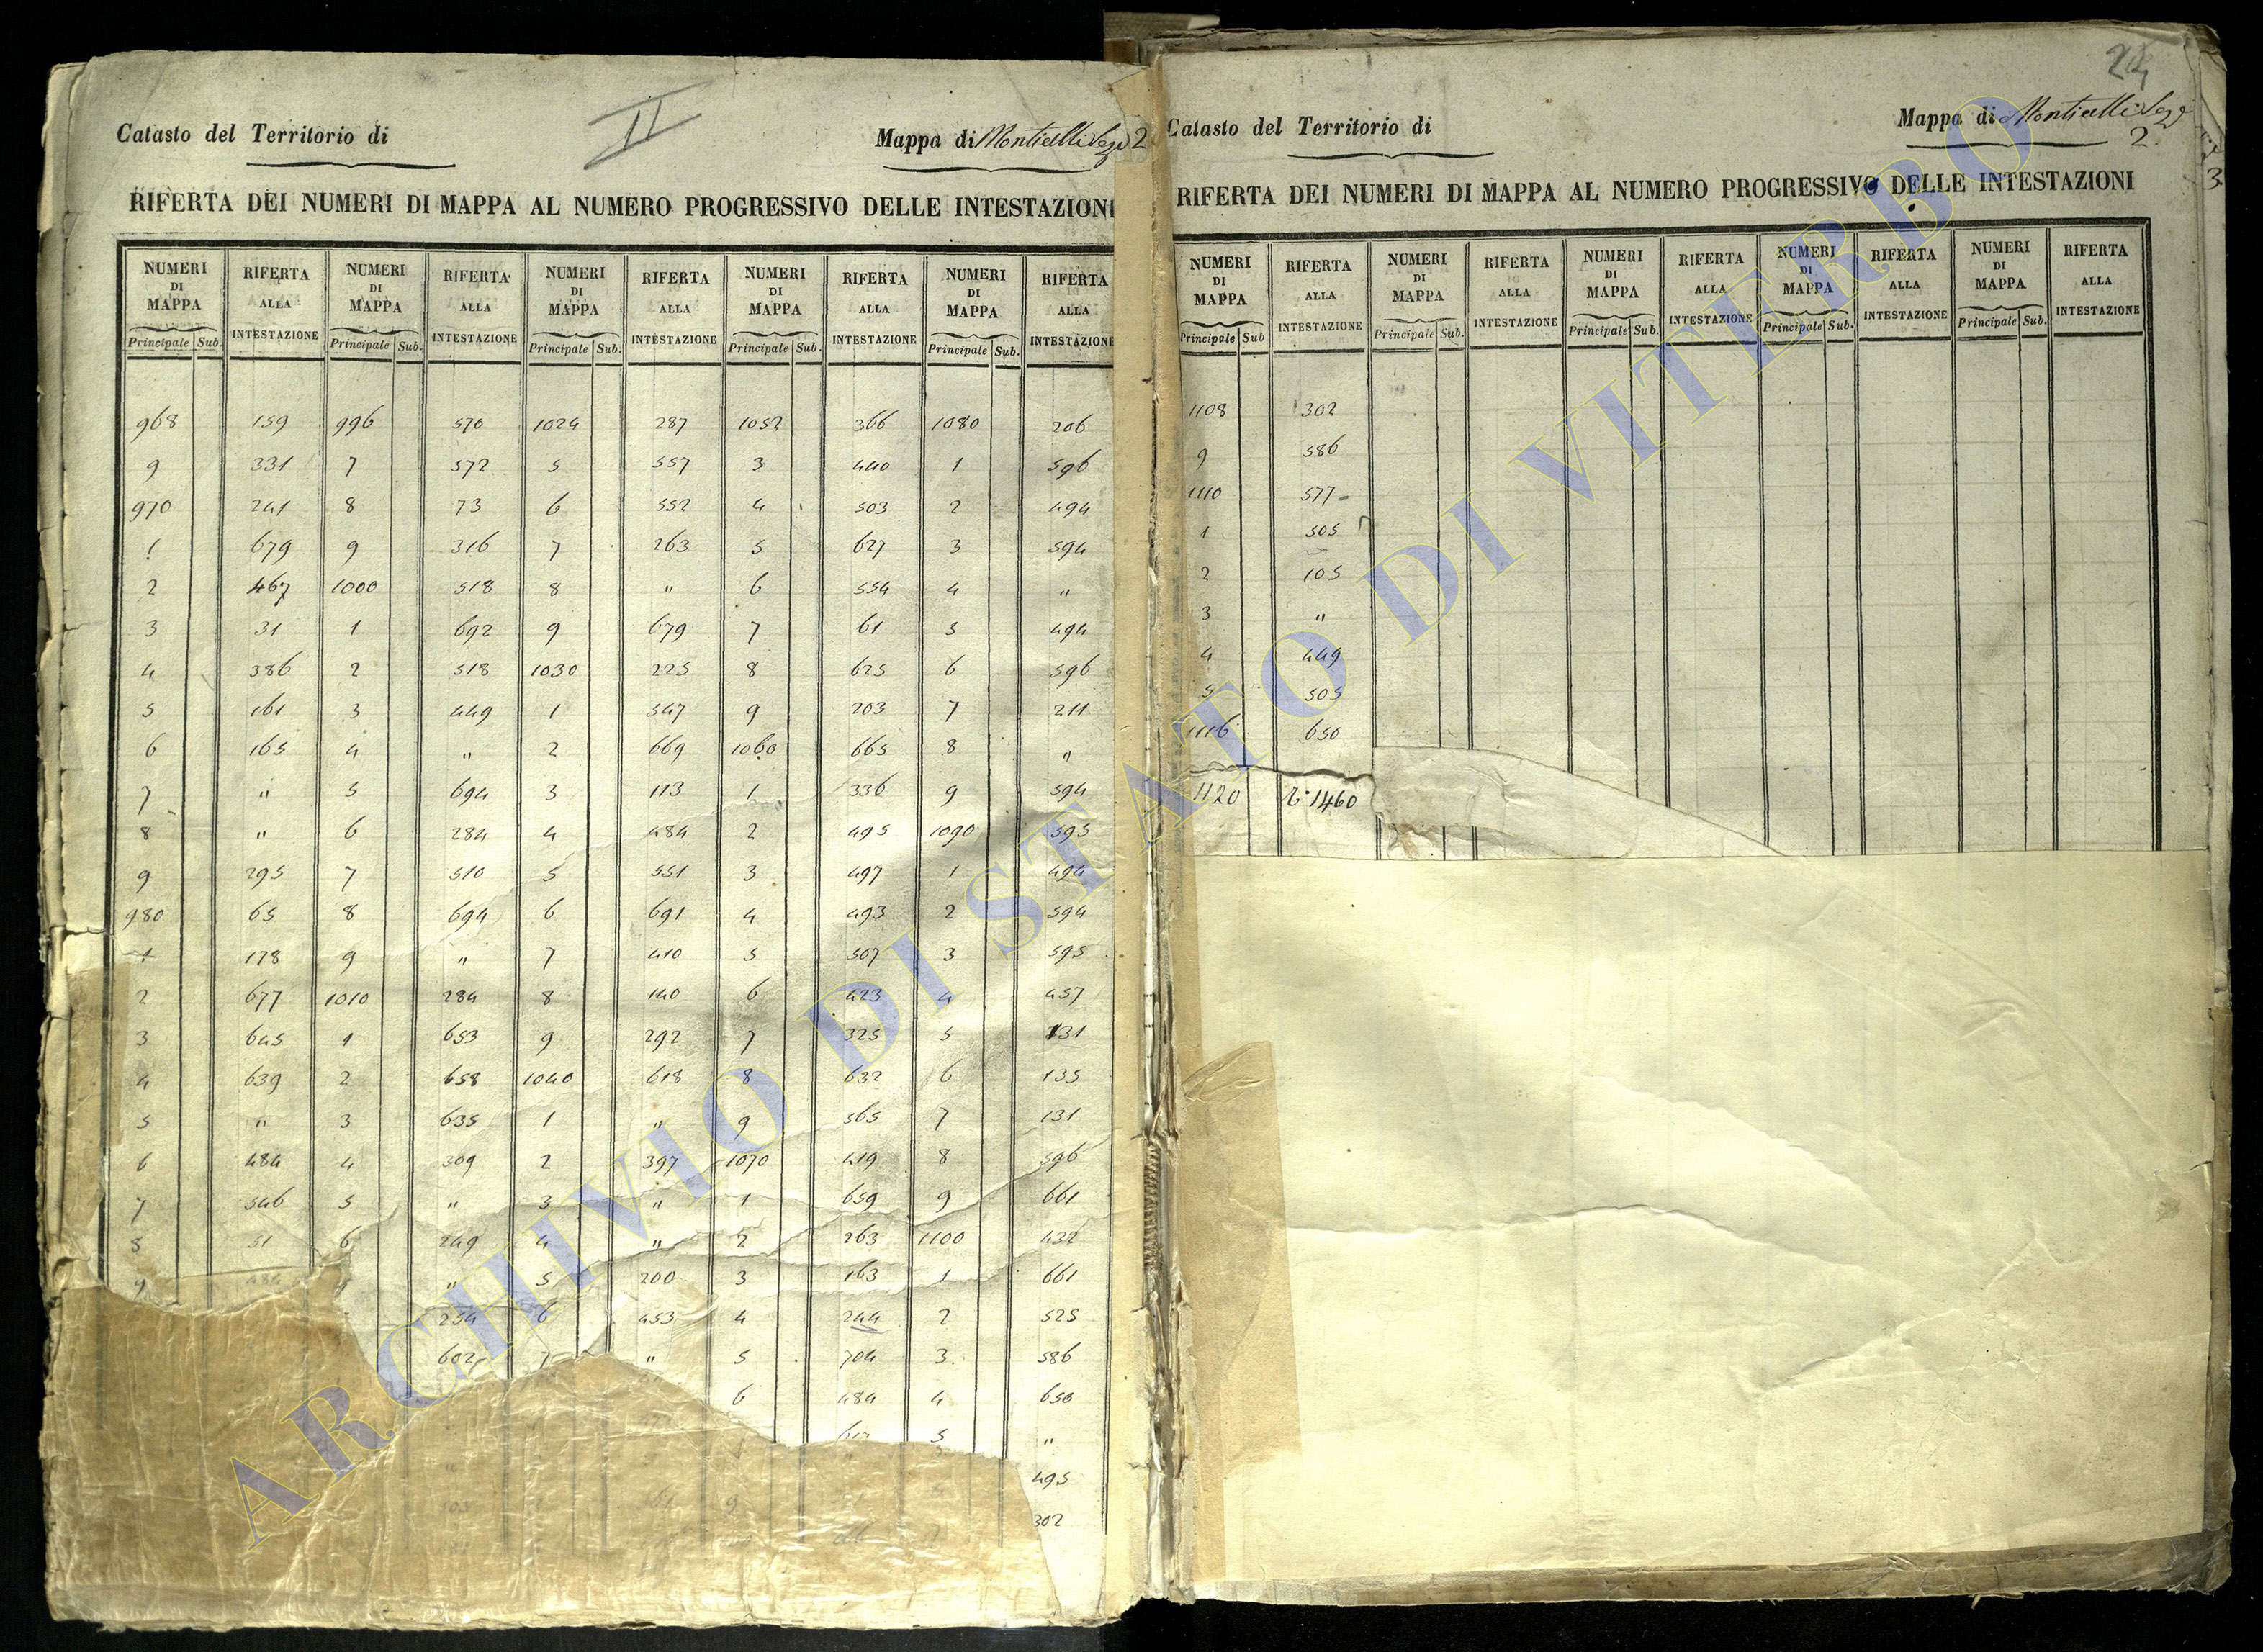 II
Catasto del Territorio di
Mappa di Monticelli Sez. 2
RIFERTA DEI NUMERI DI MAPPA AL NUMERO PROGRESSIVO DELLE INTESTAZIONI
NUMERI DI MAPPA RIFERTA ALLA INTESTAZIONE NUMERI DI MAPPA RIFERTA ALLA INTESTAZIONE NUMERI DI MAPPA RIFERTA ALLA INTESTAZIONE NUMERI DI MAPPA RIFERTA ALLA INTESTAZIONE NUMERI DI MAPPA RIFERTA ALLA INTESTAZIONE
Principale Sub. Principale Sub. Principale Sub. Principale Sub. Principale Sub.
968 159 996 570 1024 287 1052 366 1080 206
9 331 7 572 5 557 3 440 1 596
970 241 8 73 6 552 4 503 2 494
1 679 9 316 7 263 5 627 3 594
2 467 1000 518 8 " 6 554 4 "
3 31 1 692 9 679 7 61 5 494
4 386 2 518 1030 225 8 625 6 596
5 161 3 449 1 547 9 203 7 211
6 165 4 " 2 669 1060 665 8 "
7 " 5 694 3 113 1 336 9 594
8 " 6 284 4 484 2 495 1090 595
9 295 7 510 5 551 3 497 1 494
980 65 8 694 6 691 4 493 2 594
1 178 9 " 7 410 5 507 3 595
2 677 1010 284 8 140 6 423 4 457
3 645 1 653 9 292 7 325 5 131
4 639 2 658 1040 618 8 632 6 135
5 " 3 635 1 " 9 565 7 131
6 484 4 309 2 397 1070 419 8 596
7 546 5 " 3 " 1 659 9 661
8 51 6 249 4 " 2 263 1100 432
9 484 " 5 200 3 163 1 661
254 6 453 4 244 2 525
602 7 " 5 704 3 586
6 484 4 650
5 "
495
302
24
Catasto del Territorio di
Mappa di Monticelli Sez.
2
3
RIFERTA DEI NUMERI DI MAPPA AL NUMERO PROGRESSIVO DELLE INTESTAZIONI
NUMERI DI MAPPA RIFERTA ALLA INTESTAZIONE NUMERI DI MAPPA RIFERTA ALLA INTESTAZIONE NUMERI DI MAPPA RIFERTA ALLA INTESTAZIONE NUMERI DI MAPPA RIFERTA ALLA INTESTAZIONE NUMERI DI MAPPA RIFERTA ALLA INTESTAZIONE
Principale Sub Principale Sub. Principale Sub. Principale Sub. Principale Sub.
1108 302
9 586
1110 577
1 505
2 105
3 "
4 449
5 505
1116 650
1120 1460
ARCHIVIO DI STATO DI VITERBO